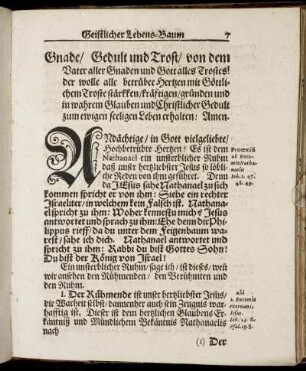 Geistlicher Lebens-Baum 7
Gnade/ Gedult und Trost/ von dem
Vater aller Gnaden und Gott alles Trostes/
der wolle alle betrübte Hertzen mit Göttli-
chem Troste stärcken/kräfftigen/gründen und
in wahrem Glauben und Christlicher Gedult
zum ewigen seeligen Leben erhalten/ Amen.
ANdächtige/ in Gott vielgeliebte/
Hochbetrübte Hertzen/ Es ist dem
Nathanael ein unsterblicher Ruhm
daß unser hertzliebster Jesus so löbli-
che Reden von ihm geführet. Denn
da JEsus sahe Nathanael zu sich
kommen spricht er von ihm: Siehe ein rechter
Israeliter/ in welchem kein Falsch ist. Nathana-
el spricht zu ihm: Woher kennestu mich? Jesus
antwortet und sprach zu ihm: Ehe denn dir Phi-
lippus rieff/ da du unter dem Feigenbaum wa-
rest/ sahe ich dich. Nathanael antwortet und
spricht zu ihm: Rabbi du bist Gottes Sohn/
Du bist der König von Israel!
Ein unsterblicher Ruhm/ sage ich/ ist dieses/ weñ
wir ansehen den Rühmenden/ den Berühmten und
den Ruhm.
1. Der Rühmende ist unser hertzliebster Jesus/
die Warheit selbst/ dannenher auch sein Zeugnis war-
hafftig ist. Dieser ist dem herzlichen Glaubens Er-
käntniß und Mündlichem Bekäntnis Nathanaelis
nach
(1) Der
Joh. 1. 47.
48. 49.